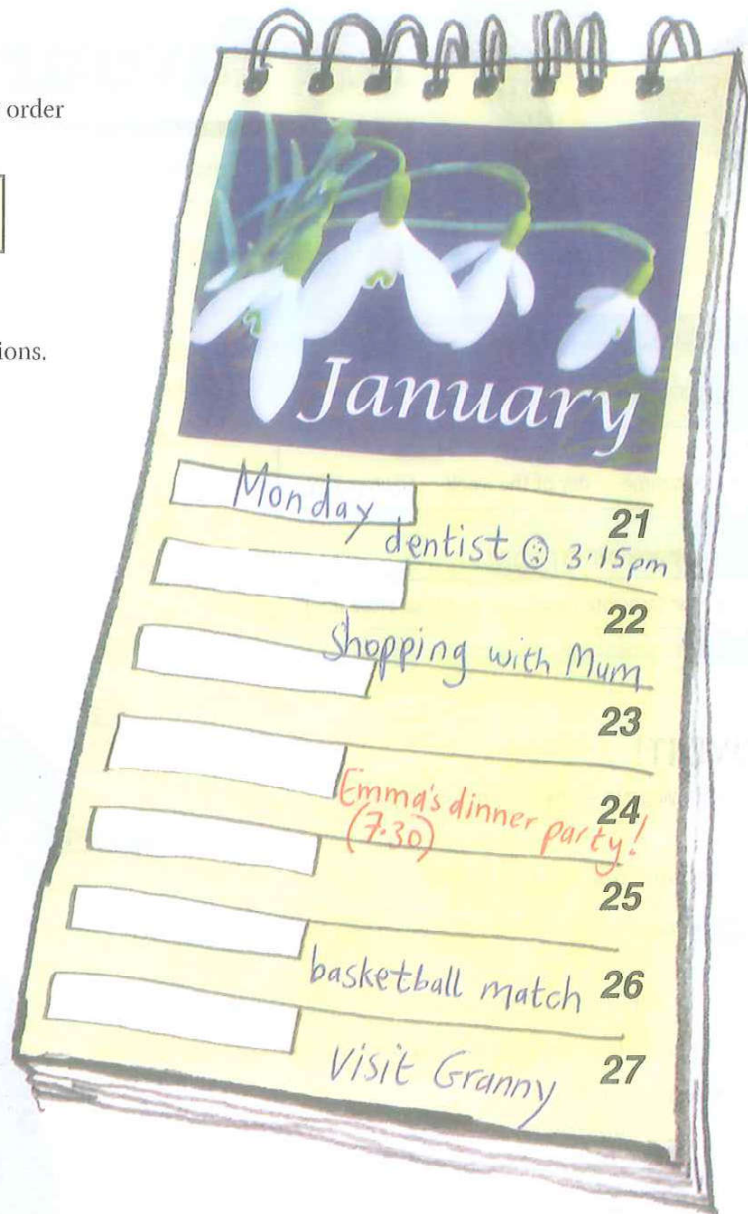 order
ions.
January
Monday
21
dentist ☹ 3.15pm
22
Shopping with Mum
23
24
Emma's dinner party!
(7.30)
25
basketball match 26
Visit Granny 27